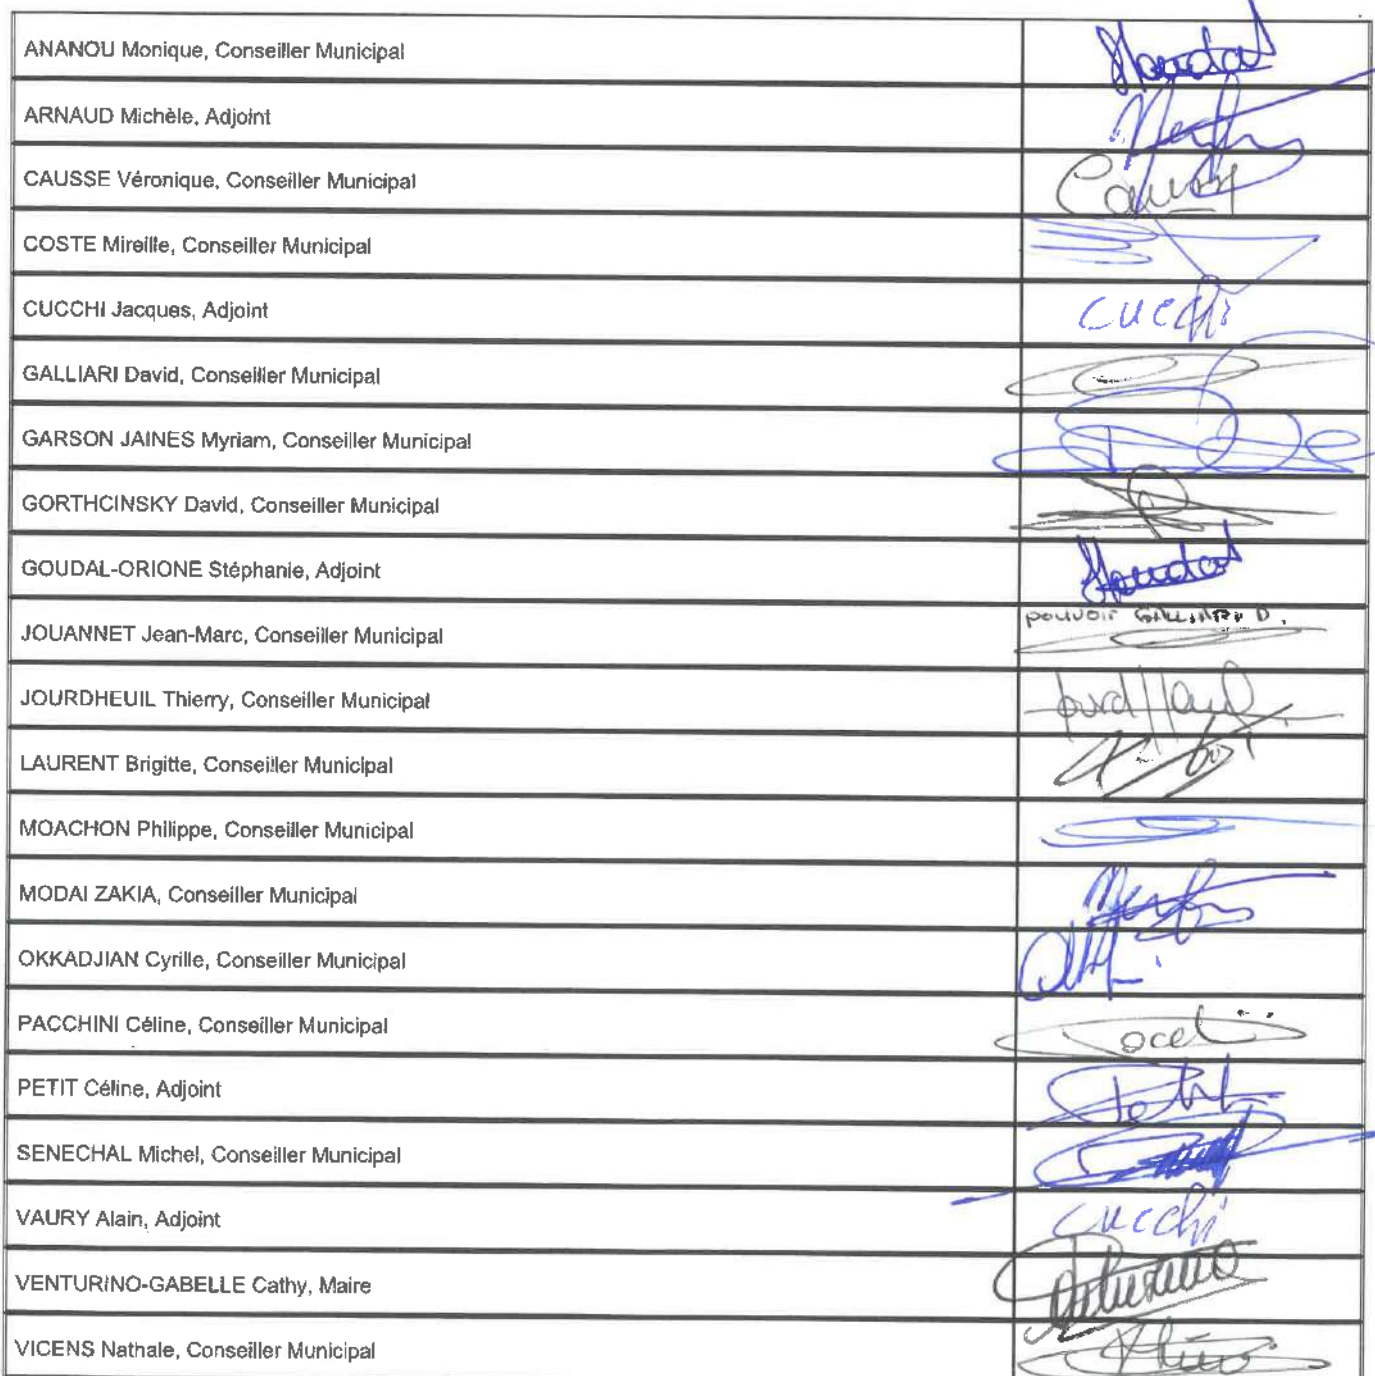 ANANOU Monique, Conseiller Municipal
Goudal
ARNAUD Michèle, Adjoint
CAUSSE Véronique, Conseiller Municipal
COSTE Mireille, Conseiller Municipal
CUCCHI Jacques, Adjoint
cucchi
GALLIARI David, Conseiller Municipal
GARSON JAINES Myriam, Conseiller Municipal
GORTHCINSKY David, Conseiller Municipal
GOUDAL-ORIONE Stéphanie, Adjoint
Goudal
JOUANNET Jean-Marc, Conseiller Municipal
pouvoir GALLIARI D.
JOURDHEUIL Thierry, Conseiller Municipal
LAURENT Brigitte, Conseiller Municipal
MOACHON Philippe, Conseiller Municipal
MODAI ZAKIA, Conseiller Municipal
OKKADJIAN Cyrille, Conseiller Municipal
PACCHINI Céline, Conseiller Municipal
PETIT Céline, Adjoint
Petit
SENECHAL Michel, Conseiller Municipal
VAURY Alain, Adjoint
cucchi
VENTURINO-GABELLE Cathy, Maire
VICENS Nathale, Conseiller Municipal